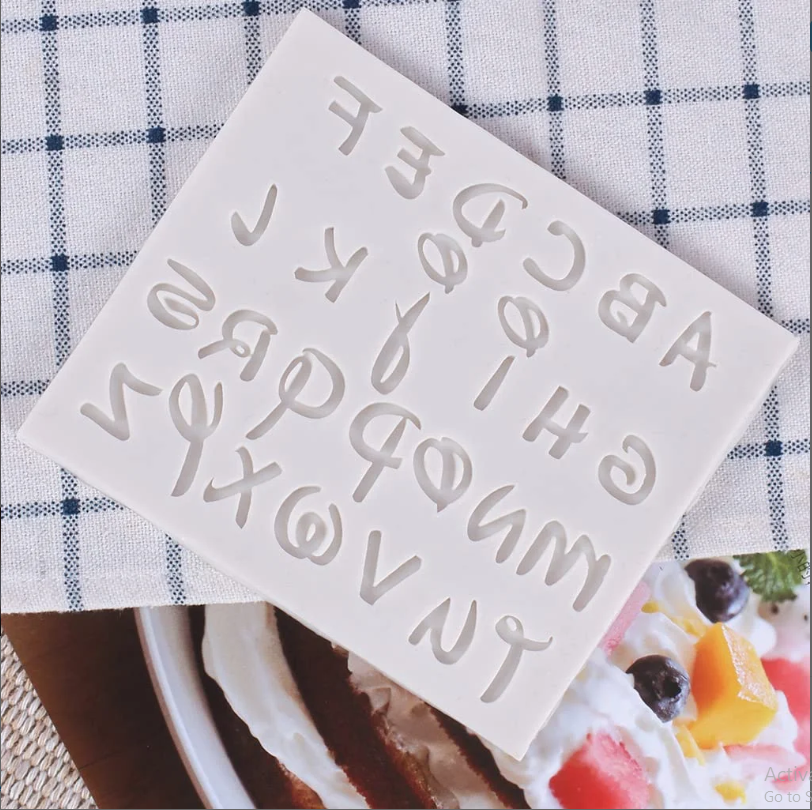 A B C D E F
G H I J K L
M N O P Q R S
T U V W X Y Z
Activ
Go to S